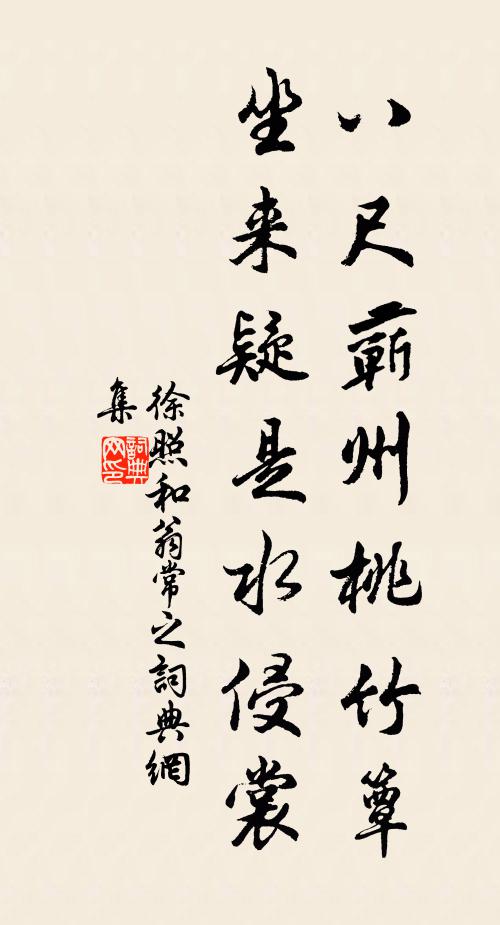 八尺蕲州桃竹簟
坐来疑是水侵裳
徐照和翁常之詞典網
集
詞典網印